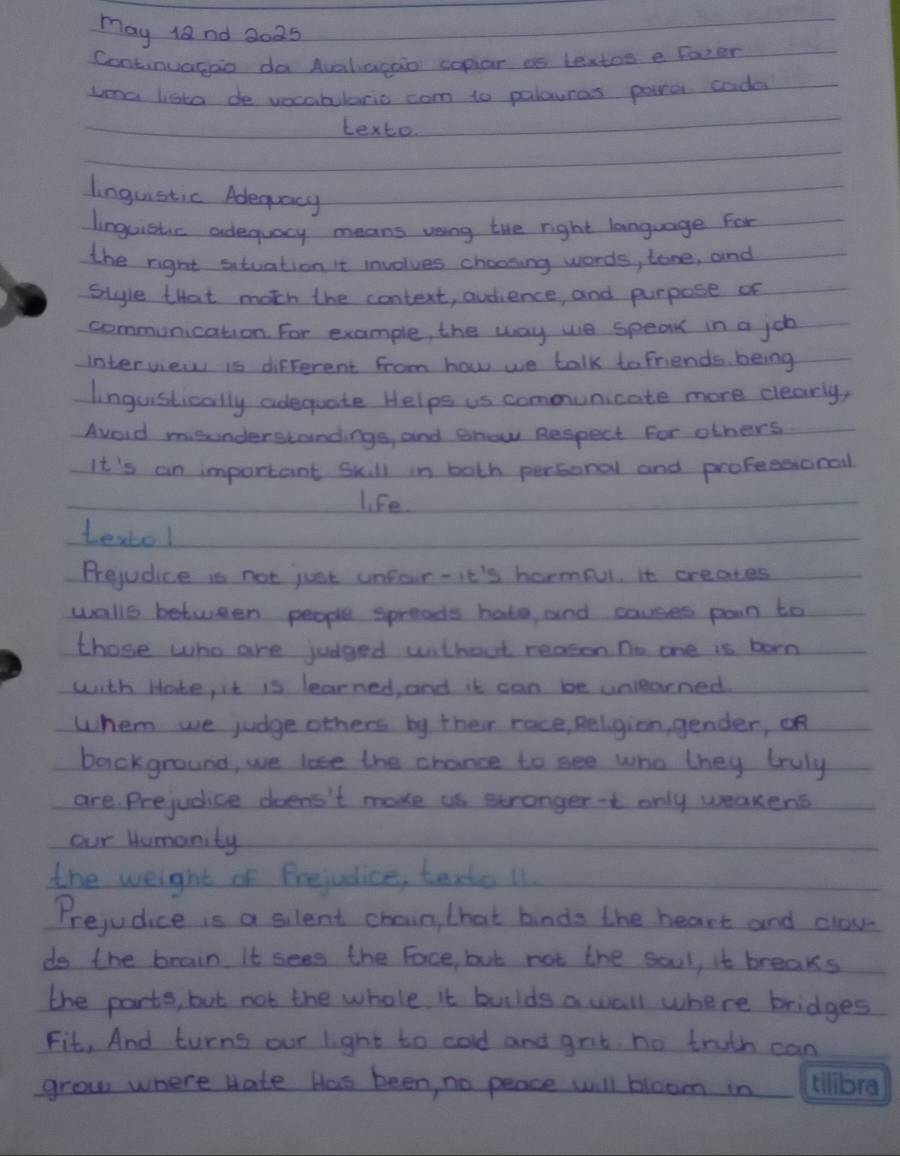 May 12nd 2025
Continuação da Avaliação copiar os textos e fazer
uma lista de vocabulario com 10 palavras para cada
texto.
linguistic Adequacy
linguistic adequacy means using the right language for
the right situation it involves choosing words, tone, and
Style that match the context, audience, and purpose of
communication. For example, the way we speak in a job
interview is different from how we talk to friends. being
linguistically adequate Helps us communicate more clearly,
Avoid misunderstandings, and show Respect For others.
It's an important skill in both personal and professional
life.
texto I
Prejudice is not just unfair - it's harmful. it creates
walls between people spreads hate, and causes pain to
those who are judged without reason. no one is born
with Hate, it is learned, and it can be unlearned.
Whem we judge others by their race, Religion, gender, OR
background, we lose the chance to see who they truly
are. Prejudice doens't make us stronger - t only weakens
our Humanity
the weight of Prejudice, texto II.
Prejudice is a silent chain, that binds the heart and clou-
ds the brain. It sees the Face, but not the soul, it breaks
the parts, but not the whole. it builds a wall where bridges
Fit, And turns our light to cold and grit. no truth can
grow where Hate Has been, no peace will bloom in
tilibra